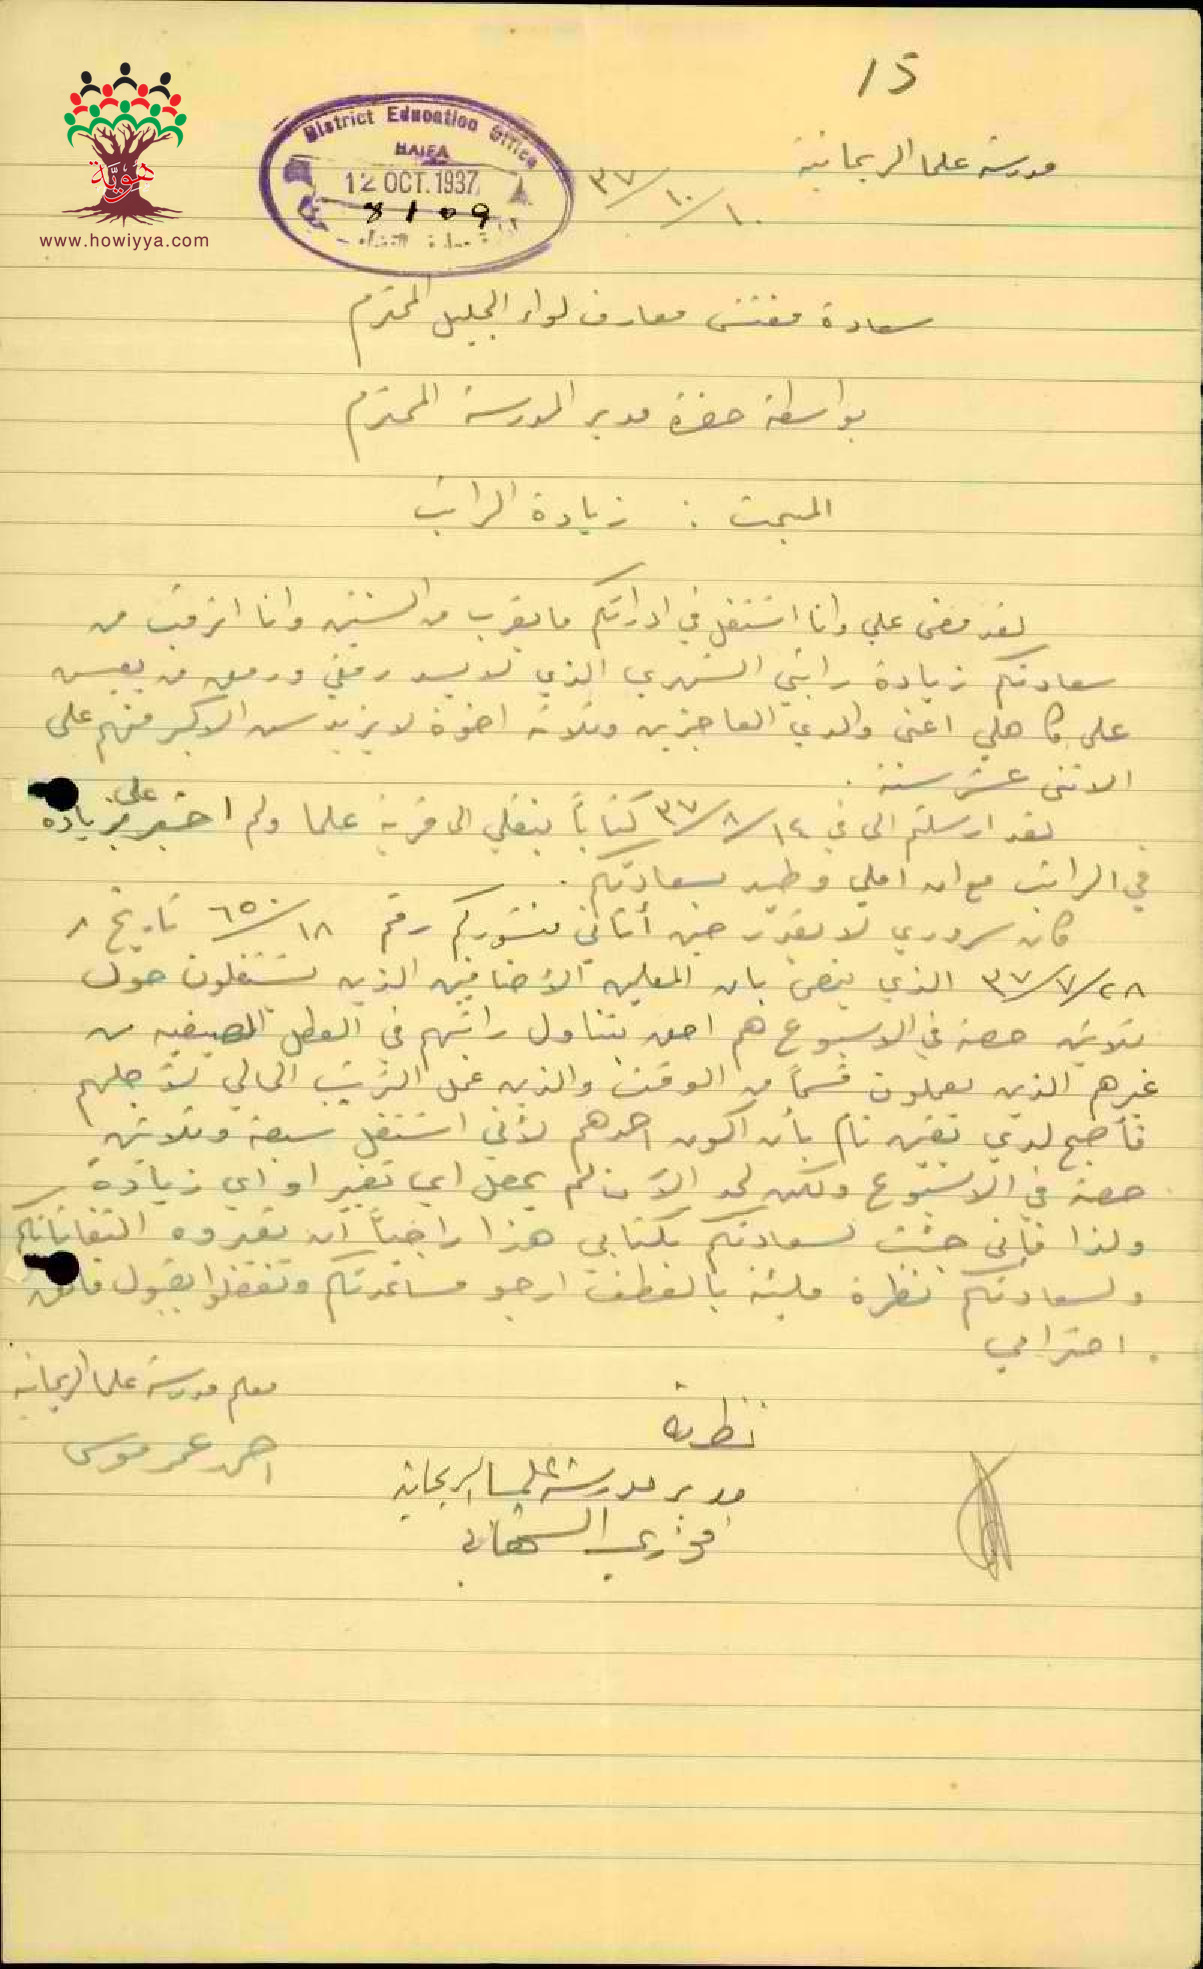 15
District Education Office
HAIFA
12 OCT. 1937
8109
هوية
www.howiyya.com
مدرسة علما الريحانية
١٠/١٠/٣٧
سعادة مفتش معارف لواء الجليل المحترم
بواسطة حضرة مدير المدرسة المحترم
المبحث : زيادة الراتب
لقد مضى علي وانا اشتغل في ادارتكم ما يقرب من السنتين وانا اترقب من
سعادتكم زيادة راتبي الشهري الذي لا يسد رمقي ورمق من يعيش
على كاهلي اعني والدي العاجزين وثلاثة اخوة لا يزيد سن الاكبر منهم على
الاثني عشر سنة .
لقد ارسلتم الي في ١٤/٨/٣٧ كتاباً بنقلي الى قرية علما ولم احصل على زيادة
في الراتب مع ان املي وطيد بسعادتكم .
كان سروري لا يقدر حين أتاني منشوركم رقم ٦٥٠/١٨ تاريخ
٢٨/٧/٣٧ الذي ينص بان المعلمين الأضافيين الذين يشتغلون حول
ثلاثين حصة في الاسبوع هم احق بتناول راتبهم في العطل الصيفيه من
غيرهم الذين يعملون قسماً من الوقت والذين عمل الترتيب الحالي لأجلهم
فأصبح لدي يقين تام بأن اكون احدهم لأني اشتغل سبعة وثلاثين
حصة في الاسبوع ولكن لحد الآن لم يحصل اي تغير او اي زيادة
ولذا فأني جئت لسعادتكم بكتابي هذا راجياً أن تعيروه التفاتاتكم
ولسعادتكم نظرة مليئه بالعطف ارجو مساعدتكم وتفضلوا بقبول فائق
احترامي .
معلم مدرسة علما الريحانية
احمد عمر موسى
نظرت
مدير مدرسة علما الريحانية
فوزي الشهابي